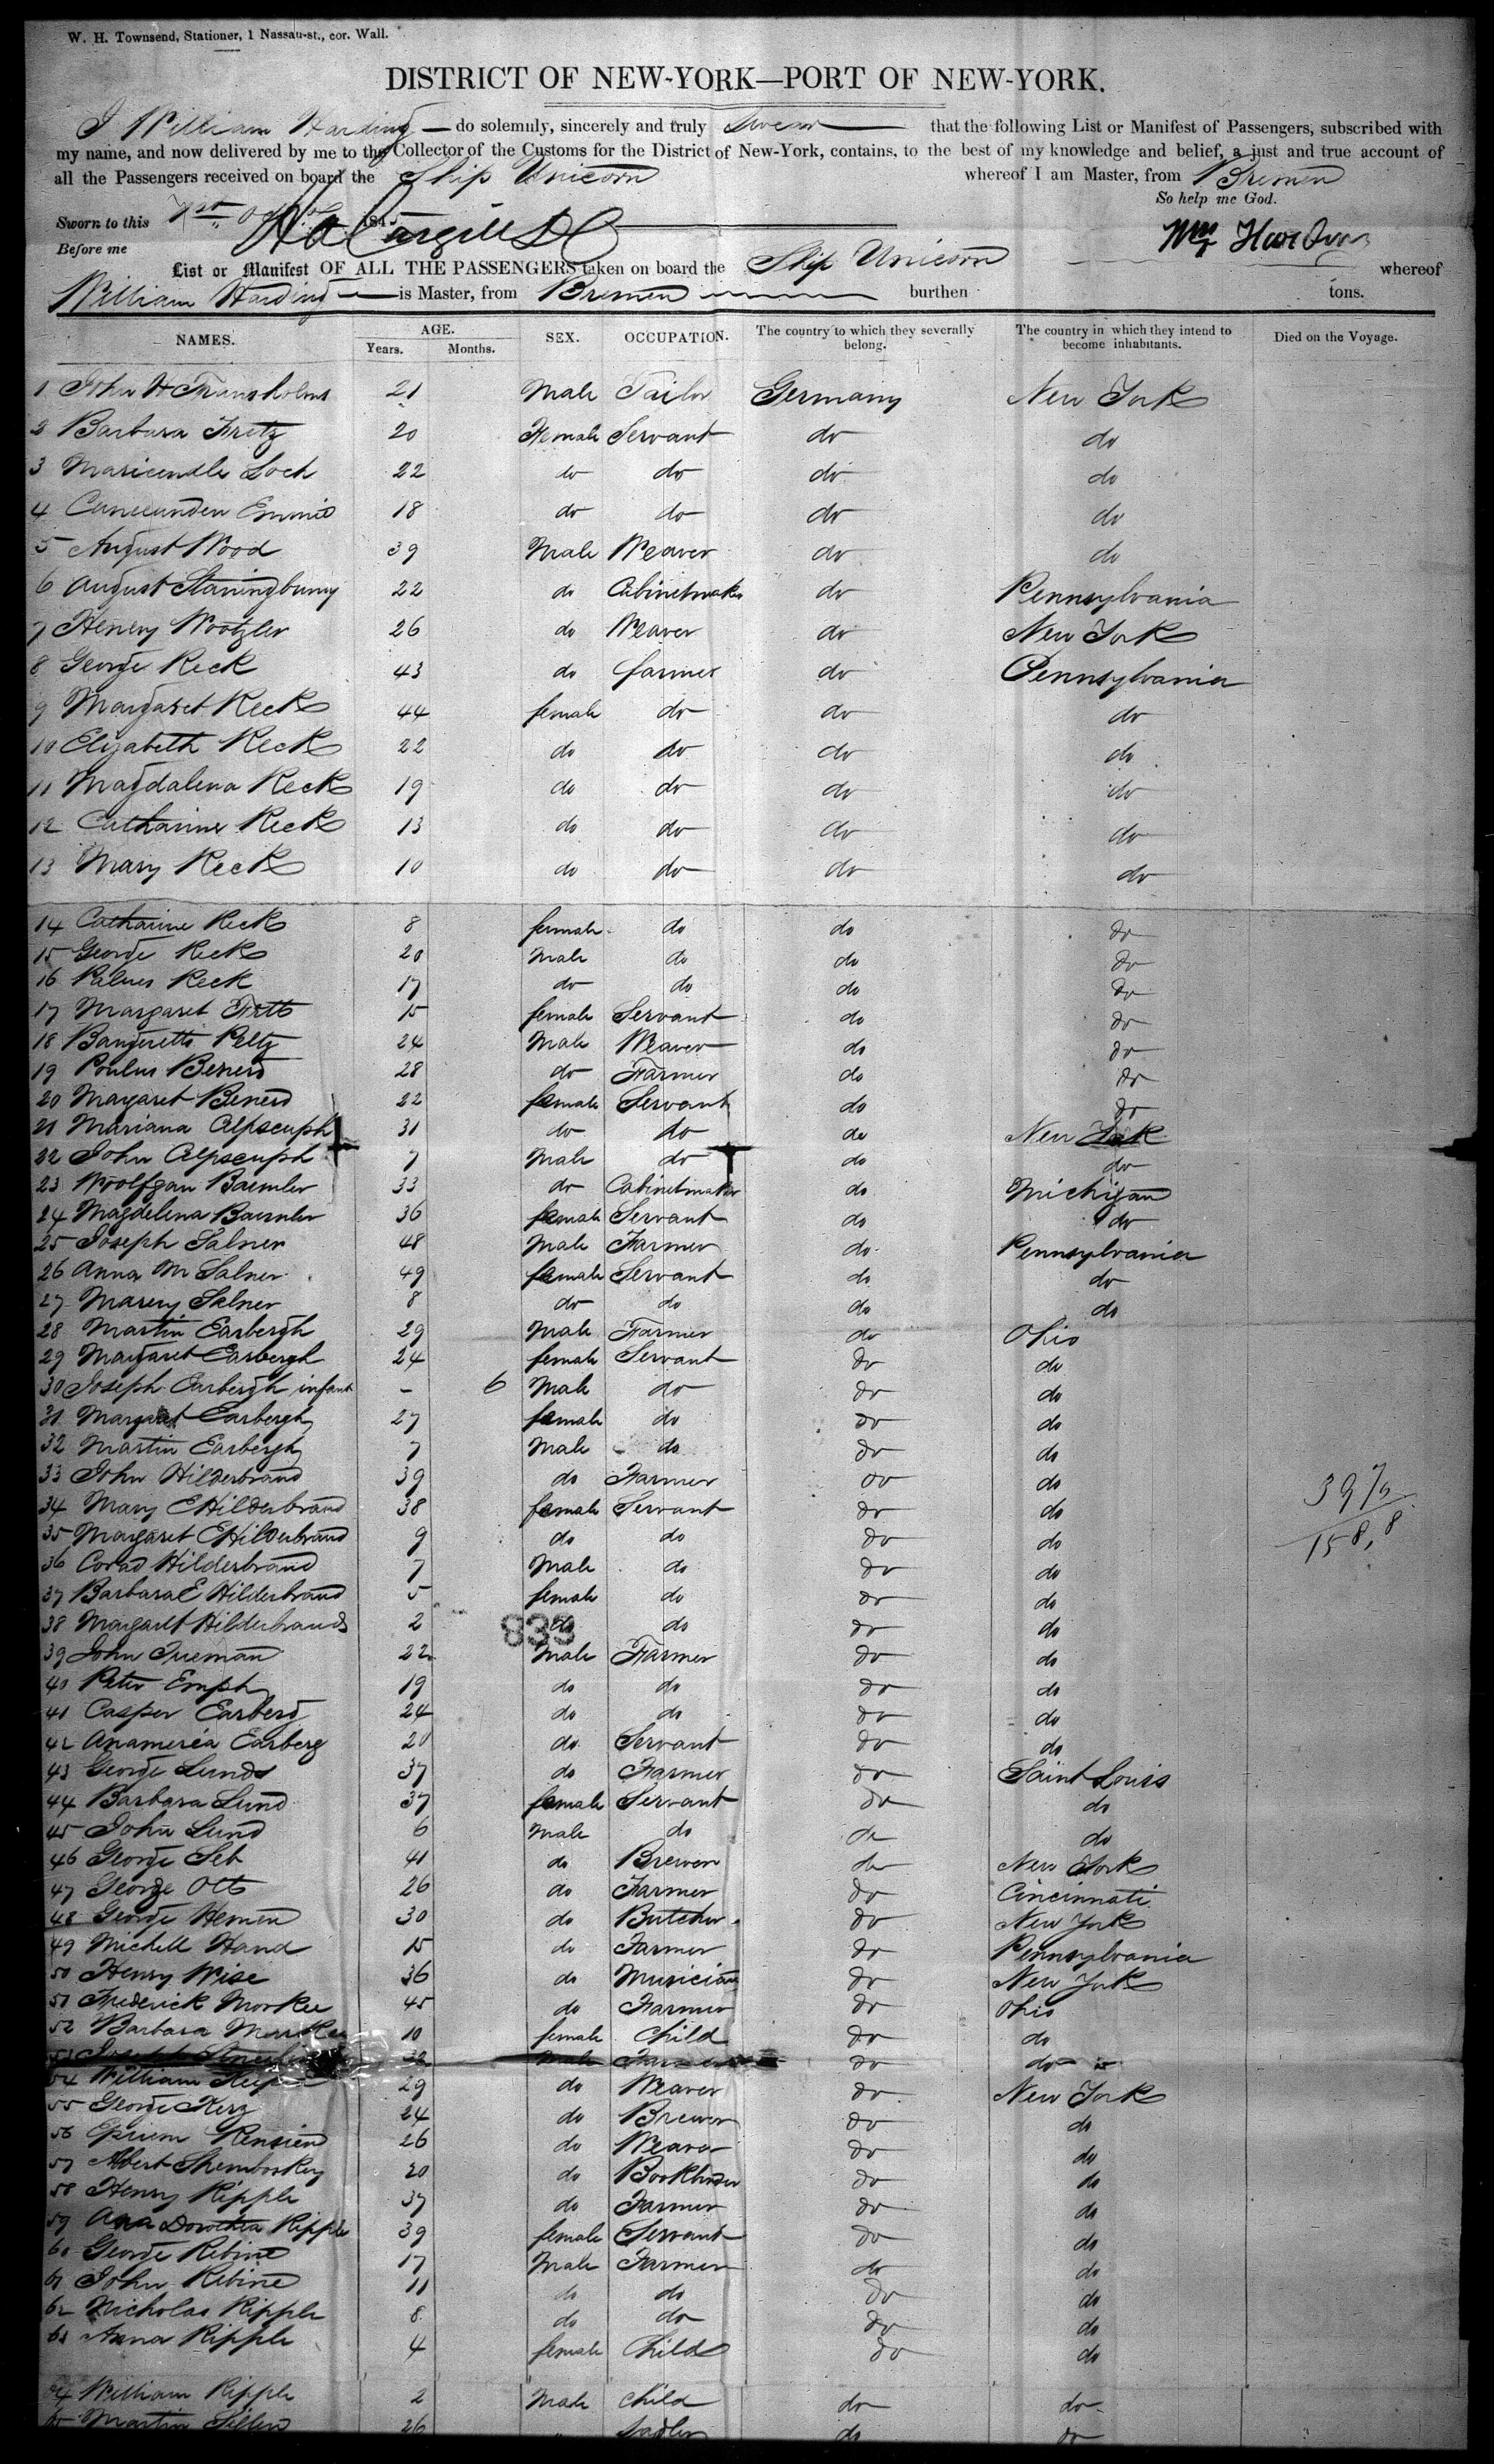 W. H. Townsend, Stationer, 1 Nassau-st., cor. Wall.
DISTRICT OF NEW-YORK—PORT OF NEW-YORK.
I William Harding do solemnly, sincerely and truly swear that the following List or Manifest of Passengers, subscribed with
my name, and now delivered by me to the Collector of the Customs for the District of New-York, contains, to the best of my knowledge and belief, a just and true account of
all the Passengers received on board the Ship Unicorn whereof I am Master, from Bremen
So help me God.
Sworn to this 1st 184
Before me Wm Harding
List or Manifest OF ALL THE PASSENGERS taken on board the Ship Unicorn whereof
William Harding is Master, from Bremen burthen tons.
NAMES. AGE. Years. Months. SEX. OCCUPATION. The country to which they severally belong. The country in which they intend to become inhabitants. Died on the Voyage.
1 John H 21 Male Tailor Germany New York
2 Barbara Fretz 20 Female Servant do do
3 Loch 22 do do do do
4 18 do do do do
5 August Wood 39 Male Weaver do do
6 August 22 do Cabinetmaker do Pennsylvania
7 Henery Wootzler 26 do Weaver do New York
8 George Reck 43 do farmer do Pennsylvania
9 Margaret Reck 44 female do do do
10 Elizabeth Reck 22 do do do do
11 Magdalena Reck 19 do do do do
12 Catharine Reck 13 do do do do
13 Mary Reck 10 do do do do
14 Catharine Reck 8 female do do do
15 George Reck 20 Male do do do
16 Reck 17 do do do do
17 Margaret 15 female Servant do do
18 Peltz 24 Male Weaver do do
19 Poulus Benerd 28 do Farmer do do
20 Margaret Benerd 22 female Servant do do
21 Mariana Alpseuph 31 do do do New York
22 John Alpseuph 7 Male do do do
23 Woolfgan Baemler 33 do Cabinetmaker do Michigan
24 Magdelena Baemler 36 female Servant do do
25 Joseph Salner 48 Male Farmer do Pennsylvania
26 Anna M Salner 49 female Servant do do
27 Marery Salner 8 do do do do
28 Martin Earbergh 29 Male Farmer do Ohio
29 Margaret Earbergh 24 female Servant do do
30 Joseph Earbergh infant - 6 Male do do do
31 Margaret Earbergh 27 female do do do
32 Martin Earbergh 7 Male do do do
33 John Hilderbrand 39 do Farmer do do
34 Mary E Hilderbrand 38 female Servant do do
35 Margaret E Hilderbrand 9 do do do do
36 Corad Hilderbrand 7 Male do do do
37 Barbara E Hilderbrand 5 female do do do
38 Margaret Hilderbrands 2 do do do do
833
39 John 22 Male Farmer do do
40 Peter Emph 19 do do do do
41 Casper Earberg 24 do do do do
42 Anameria Earberg 20 do Servant do do
43 George Lunds 37 do Farmer do Saint Louis
44 Barbara Lund 37 female Servant do do
45 John Lund 6 Male do do do
46 George Seb 41 do Brewer do New York
47 George Ott 26 do Farmer do Cincinnati
48 George Hemen 30 do Butcher do New York
49 Michell Hand 15 do Farmer do Pennsylvania
50 Henry Wise 36 do Musician do New York
51 Frederick Morkee 45 do Farmer do Ohio
52 Barbara 10 female Child do do
53 Joseph 32 Male Farmer do do
54 William 29 do Weaver do New York
55 George Kerz 24 do Brewer do do
56 26 do Weaver do do
57 Albert 20 do Bookbinder do do
58 Henry Ripple 37 do Farmer do do
59 Ana Dorothea Ripple 39 female Servant do do
60 George Rebine 17 Male Farmer do do
61 John Rebine 11 do do do do
62 Nicholas Ripple 8 do do do do
63 Anna Ripple 4 female Child do do
64 William Ripple 2 Male Child do do
65 Martin 26 " Sadler do do